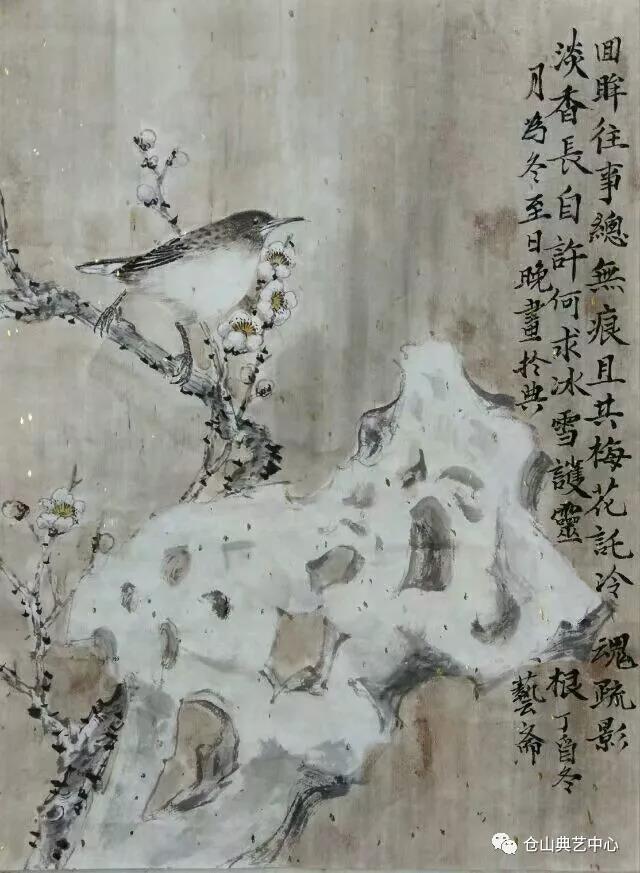 回眸往事總無痕且共梅花託冷魂疏影
淡香長自許何求冰雪護靈根丁酉冬
月為冬至日晚畫於典藝齋
仓山典艺中心